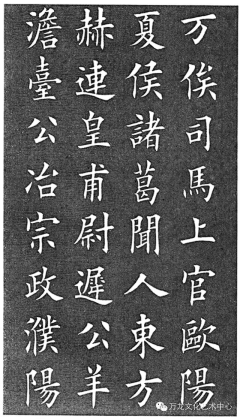 万俟司馬上官歐陽
夏侯諸葛聞人東方
赫連皇甫尉遲公羊
澹臺公冶宗政濮陽
万龙文化艺术中心